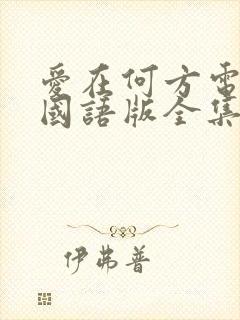 愛在何方電
國語版全集
伊弗普